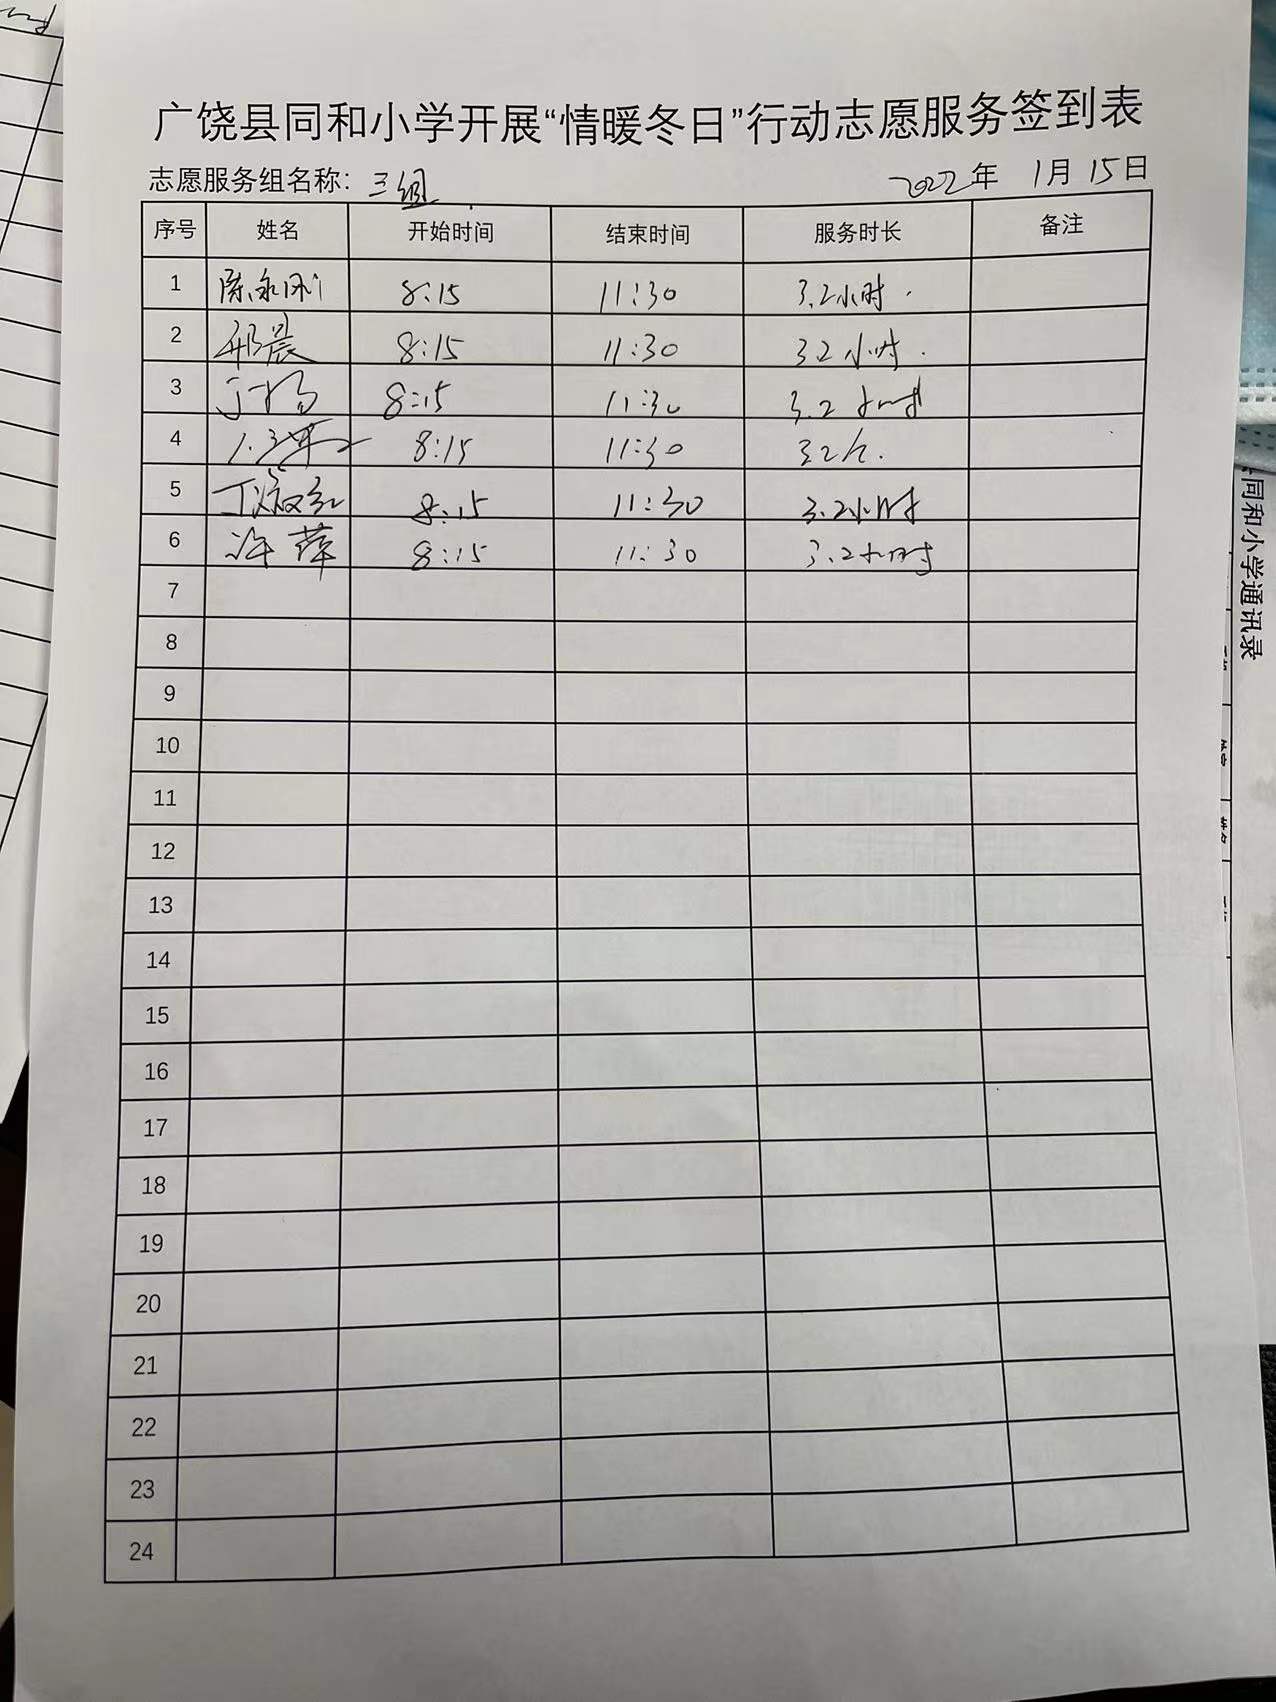 广饶县同和小学开展“情暖冬日”行动志愿服务签到表
志愿服务组名称：三组 2022年 1月15日
序号 姓名 开始时间 结束时间 服务时长 备注
1 陈永刚 8:15 11:30 3.2小时.
2 邢晨 8:15 11:30 3.2小时.
3 8:15 11:30 3.2小时
4 8:15 11:30 3.2h.
5 8:15 11:30 3.2小时
6 许萍 8:15 11:30 3.2小时
7
8
9
10
11
12
13
14
15
16
17
18
19
20
21
22
23
24
同和小学通讯录